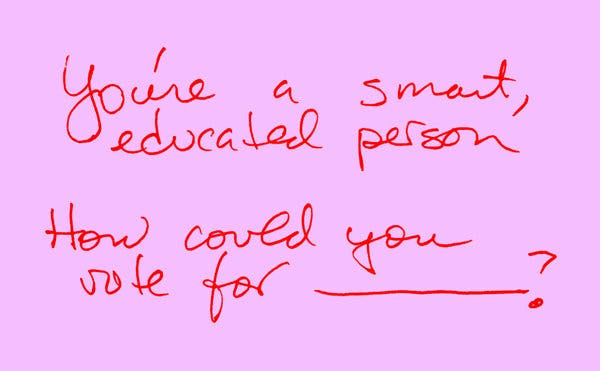 You're a smart,
educated person
How could you
vote for ________?